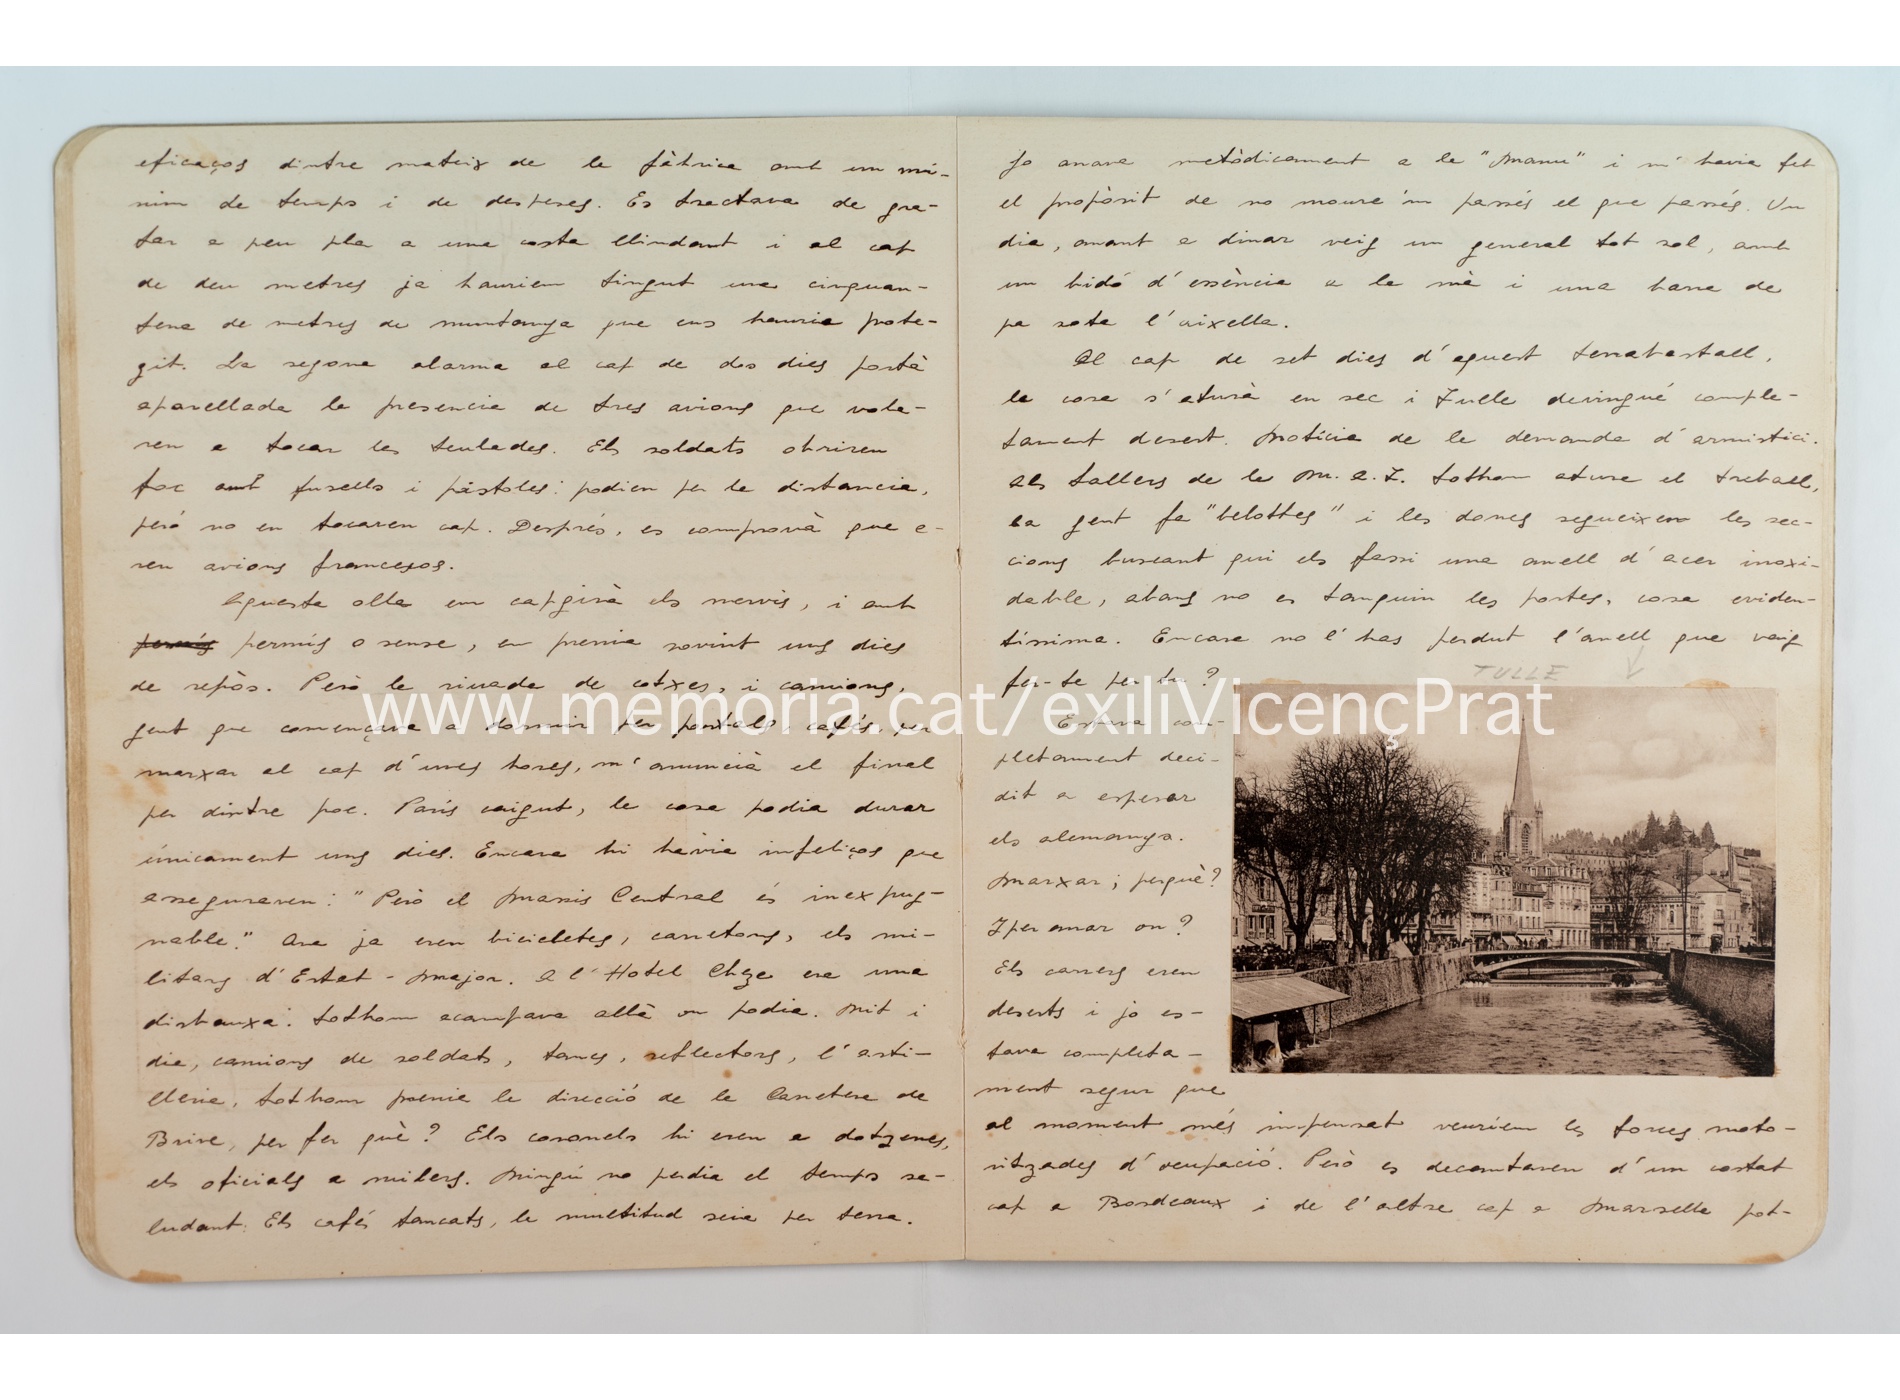 eficaços dintre mateix de la fàbrica amb un mí-
nim de temps i de despeses. Es tractava de gra-
tar a peu pla a una costa llindant i al cap
de deu metres ja haurien tingut una cinquan-
tena de metres de muntanya que ens hauria prote-
git. La segona alarma al cap de dos dies portà
aparellada la presencia de tres avions que vola-
ren a tocar les teulades. Els soldats obriren
foc amb fusells i pistoles: podien per la distancia,
però no en tocaren cap. Després, es comprovà que e-
ren avions francesos.
Aquesta olla em capgirà els nervis, i amb
permís permís o sense, em prenia sovint uns dies
de repòs. Però la riuada de cotxes, i camions,
gent que començava a dormir per portals, cafés, per
marxar al cap d'unes hores, m'anuncià el final
per dintre poc. París caigut, la cosa podia durar
únicament uns dies. Encara hi havia infeliços que
asseguraven: "Però el Massis Central és inexpug-
nable." Ara ja eren bicicletes, carretons, els mi-
litars d'Estat-Major. A l'Hotel Chze era una
disbauxa. Tothom acampava allà on podia. Nit i
dia, camions de soldats, tancs, reflectors, l'arti-
lleria, tothom prenia la direcció de la Carretera de
Brive, per fer què? Els coronels hi eren a dotzenes,
els oficials a milers. Ningú no perdia el temps sa-
ludant. Els cafés tancats, la multitud seia per terra.
Jo anava metòdicament a la "Manu" i m'havia fet
el propòsit de no moure'm passés el que passés. Un
dia, anant a dinar veig un general tot sol, amb
un bidó d'essència a la mà i una barra de
pa sota l'aixella.
Al cap de set dies d'aquest terrabastall,
la cosa s'aturà en sec i Tulle devingué comple-
tament desert. Notícia de la demanda d'armistici.
Als tallers de la M.A.T. tothom atura el treball,
la gent fa "belottes" i les dones segueixen les sec-
cions buscant qui els fassi una anell d'acer inoxi-
dable, abans no es tanquin les portes, cosa eviden-
tíssima. Encara no l'has perdut l'anell que vaig
TULLE
fer-te per tu?
www.memoria.cat/exiliVicençPrat
Estava com-
pletament deci-
dit a esperar
els alemanys.
Marxar; perquè?
I per anar on?
Els carrers eren
deserts i jo es-
tava completa-
ment segur que
al moment més impensat veuriem les forces moto-
ritzades d'ocupació. Però es decantaren d'un costat
cap a Bordeaux i de l'altre cap a Marselle pot-